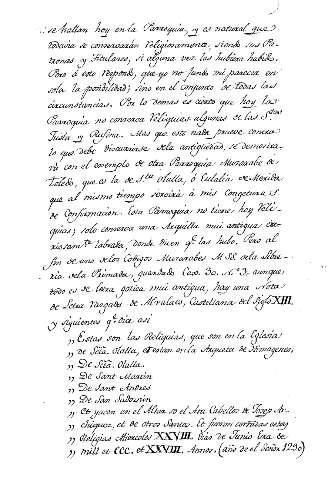 se hallan hoy en la Parroquia, y es natural que
todavia se conservarán Religiosamente, siendo sus Pa-
tronas y Titulares, si alguna vez las hubiera habido.
Pero á esto respondo, que yo no fundo mi parecer en
sola la posibilidad; sino en el conjunto de todas las
circunstancias. Por lo demas es cierto que hoy la
Parroquia no conserva Reliquias algunas de las Stas
Justa y Rufina. Mas que esto nada pruebe contra
lo que debe discurrirse de la antigüedad, se demostra-
rá con el exemplo de otra Parroquia Muzarabe de
Toledo, que es la de Sta Olalla, ó Eulalia de Merida
que al mismo tiempo servirá á mis Congeturas
de Confirmacion. Esta Parroquia no tiene hoy Reli-
quias; solo conserva una Arquilla mui antigua cu-
riosamte labrada, donde dicen qe las hubo. Pero al
fin de uno de los Codigos Muzarabes M.SS. de la Libre-
ria de la Primada, guardado Caxon 30. No 3, aunque
todo es de letra gótica mui antigua, hay una Nota
de Letra vulgar de Mrulato, Castellana del Siglo XIII,
y siguientes qe dice asi
" Estas son las Reliquias, que son en la Eglesia
" de Sta. Olalla, et estan en la Arqueta de Ymagenes,
" De Sta. Olalla.
" De Sant Martin
" De Sant Andres
" De San Sadornin
" et yacen en el Altar so el Ara Cabellos de
" et de otros Santos. Et fueron
" Reliquias Miercoles XXVIII. dias de Junio Era de
" mill et CCC. et XXVIII. Annos. (año de el Señor 1290)